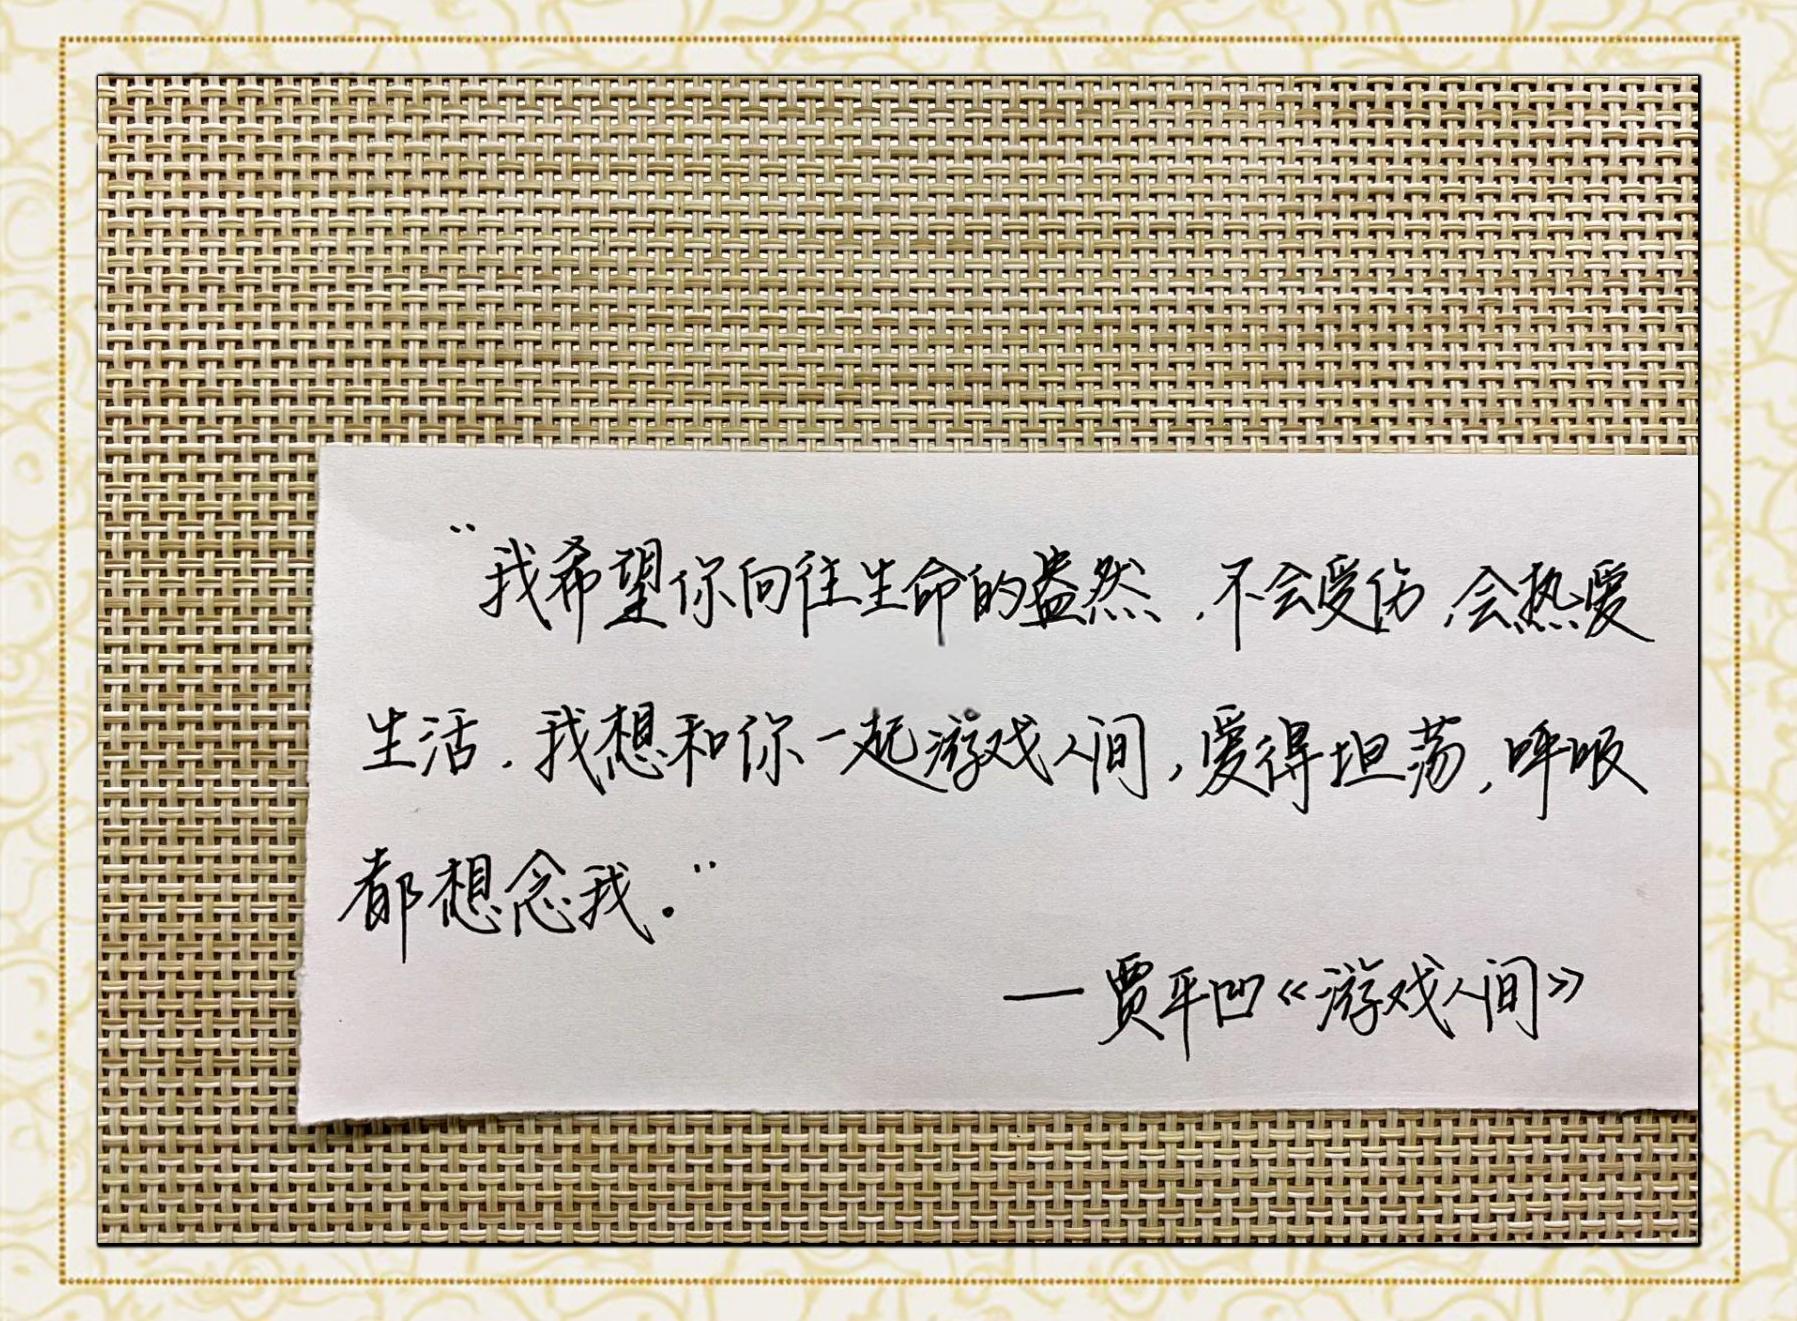 “我希望你向往生命的盎然,不会受伤,会热爱
生活.我想和你一起游戏人间,爱得坦荡,呼吸
都想念我.”
—贾平凹《游戏人间》